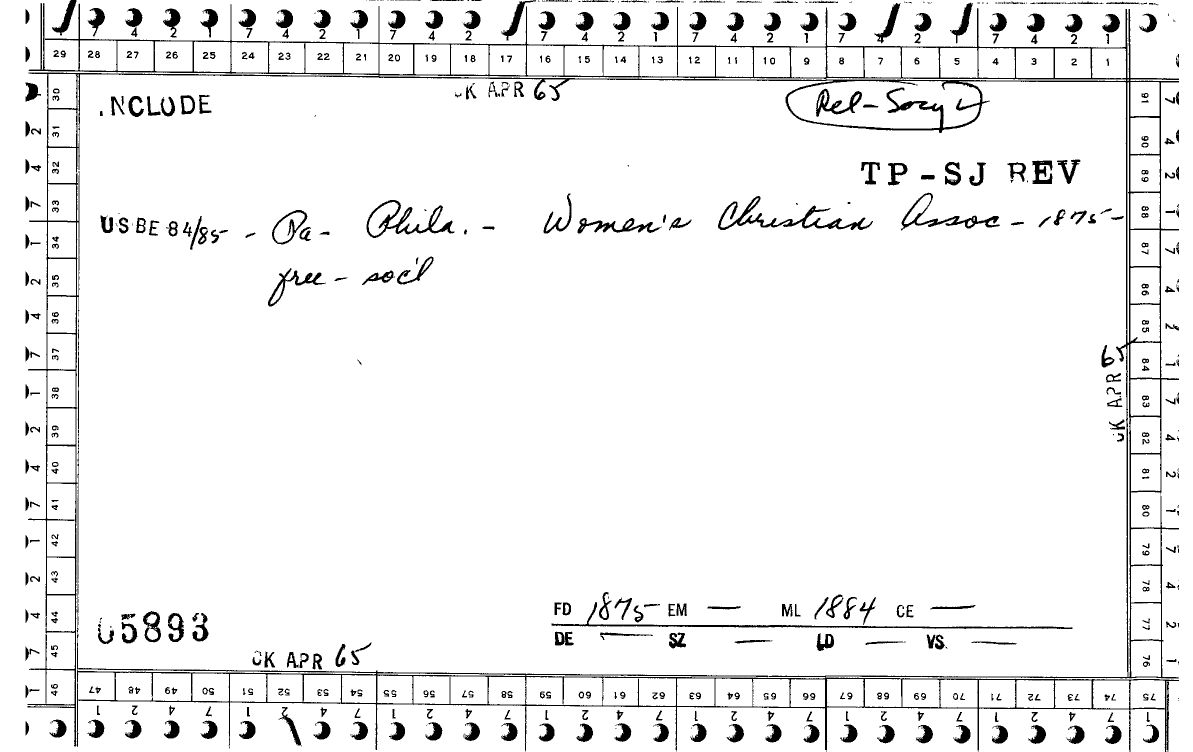 7 4 2 1 7 4 2 7 4 2 1 7 4 2 1 7 4 2 1 7 4 2 1
29 28 27 26 25 24 23 22 21 20 19 18 17 16 15 14 13 12 11 10 9 8 7 6 5 4 3 2 1
.NCLUDE
CK APR 65
Rel-Socy
TP-SJ REV
USBE 84/85 - Pa- Phila. - Women's Christian Assoc - 1875-
free - soc'l
CK APR 65
05893
FD 1875 EM — ML 1884 CE —
DE — SZ — LD — VS. —
CK APR 65
30 31 32 33 34 35 36 37 38 39 40 41 42 43 44 45 46
91 90 89 88 87 86 85 84 83 82 81 80 79 78 77 76
47 48 49 50 51 52 53 54 55 56 57 58 59 60 61 62 63 64 65 66 67 68 69 70 71 72 73 74 75
1 2 4 7 1 2 4 7 1 2 4 7 1 2 4 7 1 2 4 7 1 2 4 7 1 2 4 7 1